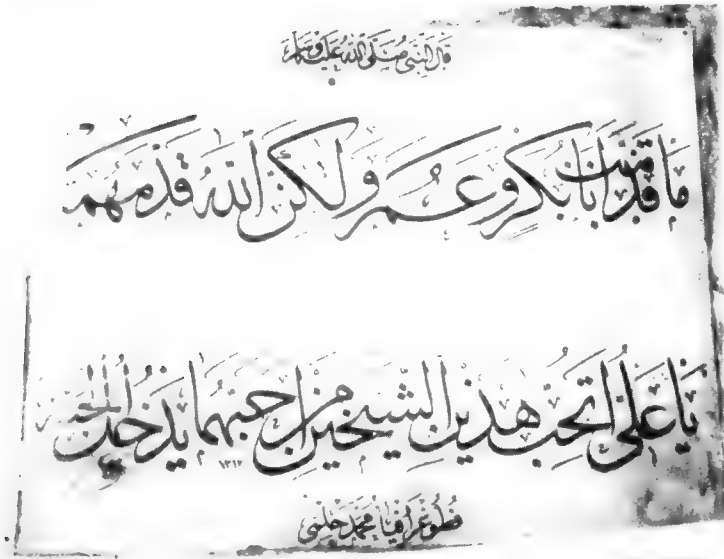 قال النبى صلى الله عليه وسلم
ما قدمت أبا بكر وعمر ولكن الله قدمهما
يا على أتحب هذين الشيخين من احبهما يدخل الجنة
١٣١٢
فطوغرافيا محمد حلمى